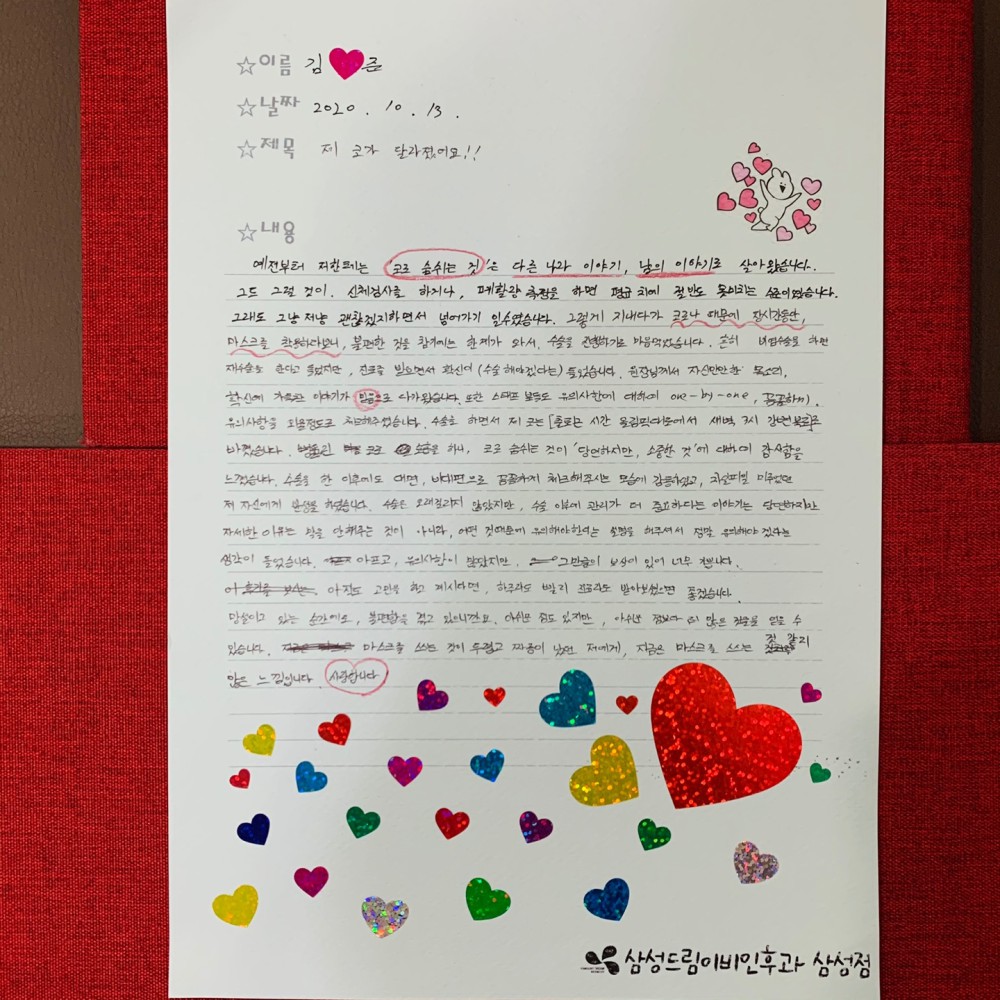 ☆이름 김♥준
☆날짜 2020. 10. 13.
☆제목 제 코가 달라졌어요!!
☆내용
예전부터 저한테는 '코로 숨쉬는 것'은 다른 나라 이야기, 남의 이야기로 살아왔습니다.
그도 그럴 것이. 신체검사를 하거나, 폐활량 측정을 하면 평균치에 절반도 못미치는 수준이었습니다.
그래도 그냥저냥 괜찮겠지하면서 넘어가기 일수였습니다. 그렇게 지내다가 코로나 때문에 장시간동안,
마스크를 착용하다보니, 불편한 것을 참기에는 한계가 와서. 수술을 진행하기로 마음먹었습니다. 흔히 비염수술로 하면
재수술을 한다고 들었지만, 진료를 받으면서 확신이 (수술 해야겠다는) 들었습니다. 원장님께서 자신만만한 목소리,
확신에 가득찬 이야기가 믿음으로 다가왔습니다. 또한 스태프 분들도 유의사항에 대하여 one-by-one, 꼼꼼하게.
유의사항을 외울정도로 체크해주셨습니다. 수술을 하면서 제 코는 [출퇴근 시간 올림픽대로에서 새벽 3시 강변북로]로
바뀌었습니다. 코로 숨을 쉬니, 코로 숨쉬는 것이 '당연하지만, 소중한 것'에 대하여 감사함을
느꼈습니다. 수술을 한 이후에도 대면, 비대면으로 꼼꼼하게 체크해주시는 모습에 감동하였고, 차일피일 미루었던
제 자신에게 반성을 하였습니다. 수술은 오래걸리지 않았지만, 수술 이후에 관리가 더 중요하다는 이야기는 당연하지만
자세한 이유는 말을 안해주는 것이 아니라, 어떤 것때문에 유의해야한다는 설명을 해주셔서 정말 유의해야 겠다는
생각이 들었습니다. 아프고, 유의사항이 많았지만, 그만큼의 보상이 있어 너무 기쁩니다.
아직도 고민을 하고 계시다면, 하루라도 빨리 진료라도 받아보셨으면 좋겠습니다.
망설이고 있는 순간에도, 불편함을 겪고 있으니까요. 아쉬운 점도 있지만, 아쉬운 점보다 더 많은 것들을 얻을 수
있습니다. 마스크를 쓰는 것이 두렵고 짜증이 났던 저에게, 지금은 마스크를 쓰는 것 같지
않은 느낌입니다. 사랑합니다
삼성드림이비인후과 삼성점